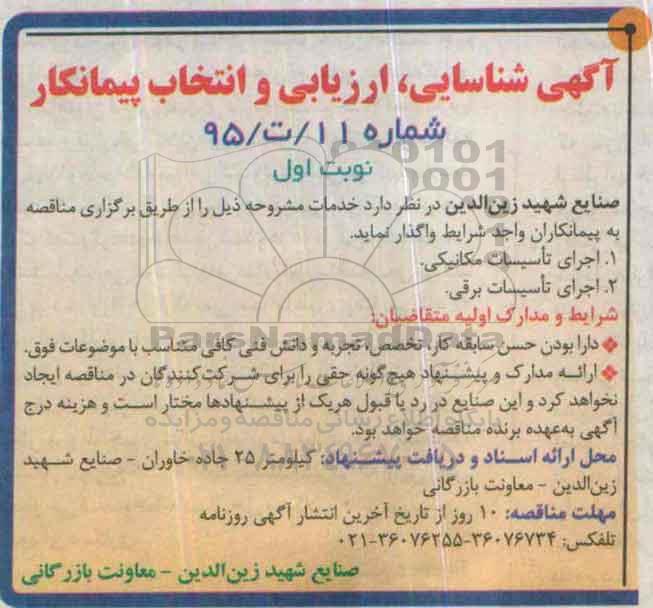 آگهی شناسایی، ارزیابی و انتخاب پیمانکار
شماره ۱۱/ت/۹۵
نوبت اول
صنایع شهید زین‌الدین در نظر دارد خدمات مشروحه ذیل را از طریق برگزاری مناقصه
به پیمانکاران واجد شرایط واگذار نماید.
۱. اجرای تأسیسات مکانیکی.
۲. اجرای تأسیسات برقی.
شرایط و مدارک اولیه متقاضیان:
❖ دارا بودن حسن سابقه کار، تخصص، تجربه و دانش فنی کافی متناسب با موضوعات فوق.
❖ ارائه مدارک و پیشنهاد هیچ‌گونه حقی را برای شرکت‌کنندگان در مناقصه ایجاد
نخواهد کرد و این صنایع در رد یا قبول هریک از پیشنهادها مختار است و هزینه درج
آگهی به‌عهده برنده مناقصه خواهد بود.
محل ارائه اسناد و دریافت پیشنهاد: کیلومتر ۲۵ جاده خاوران - صنایع شهید
زین‌الدین - معاونت بازرگانی
مهلت مناقصه: ۱۰ روز از تاریخ آخرین انتشار آگهی روزنامه
تلفکس: ۳۶۰۷۶۷۳۴-۳۶۰۷۶۲۵۵-۰۲۱
صنایع شهید زین‌الدین - معاونت بازرگانی
ParsNamadData
پایگاه اطلاع رسانی مناقصه و مزایده